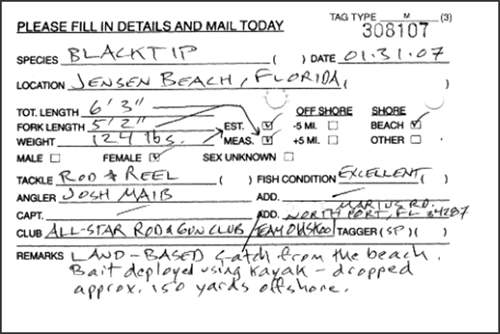 PLEASE FILL IN DETAILS AND MAIL TODAY TAG TYPE M (3)
308107
SPECIES BLACKTIP ( ) DATE 01.31.07
LOCATION JENSEN BEACH, FLORIDA ( )
TOT. LENGTH 6' 3" OFF SHORE SHORE
FORK LENGTH 5' 2" EST. -5 MI. BEACH
WEIGHT 124 lbs. MEAS. +5 MI. OTHER
MALE FEMALE SEX UNKNOWN
TACKLE ROD & REEL ( ) FISH CONDITION EXCELLENT ( )
ANGLER JOSH MAIB ADD. MARIUS RD.
CAPT. ADD. NORTH PORT, FL 34287
CLUB ALL-STAR ROD & GUN CLUB / TAGGER (SP) ( )
REMARKS LAND-BASED catch from the beach.
Bait deployed using kayak - dropped
approx. 150 yards offshore.